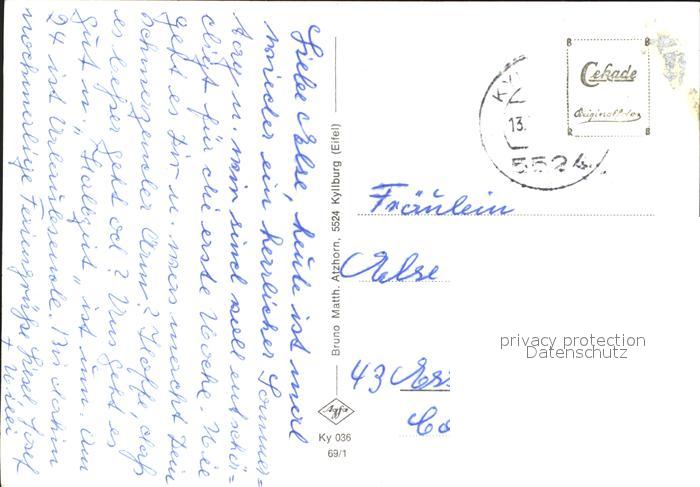 Liebe Else, heute ist mal
wieder ein herrlicher Sommer=
tag u. wir sind voll entschä=
digt für die erste Woche. Wie
geht es Dir u. was macht Dein
schmerzender Arm? Hoffe, daß
es besser geht od? Uns geht es
gut u. "Halbzeit" ist um. Am
24 ist Urlaubsende. Bis dahin
nochmalige Feriengrüße
Bruno Matth. Atzhorn, 5524 Kyllburg (Eifel)
Agfa
Ky 036
69/1
Cekade
Originalfoto
KY
13.
5524
Fräulein
Else
43 Es
privacy protection
Datenschutz